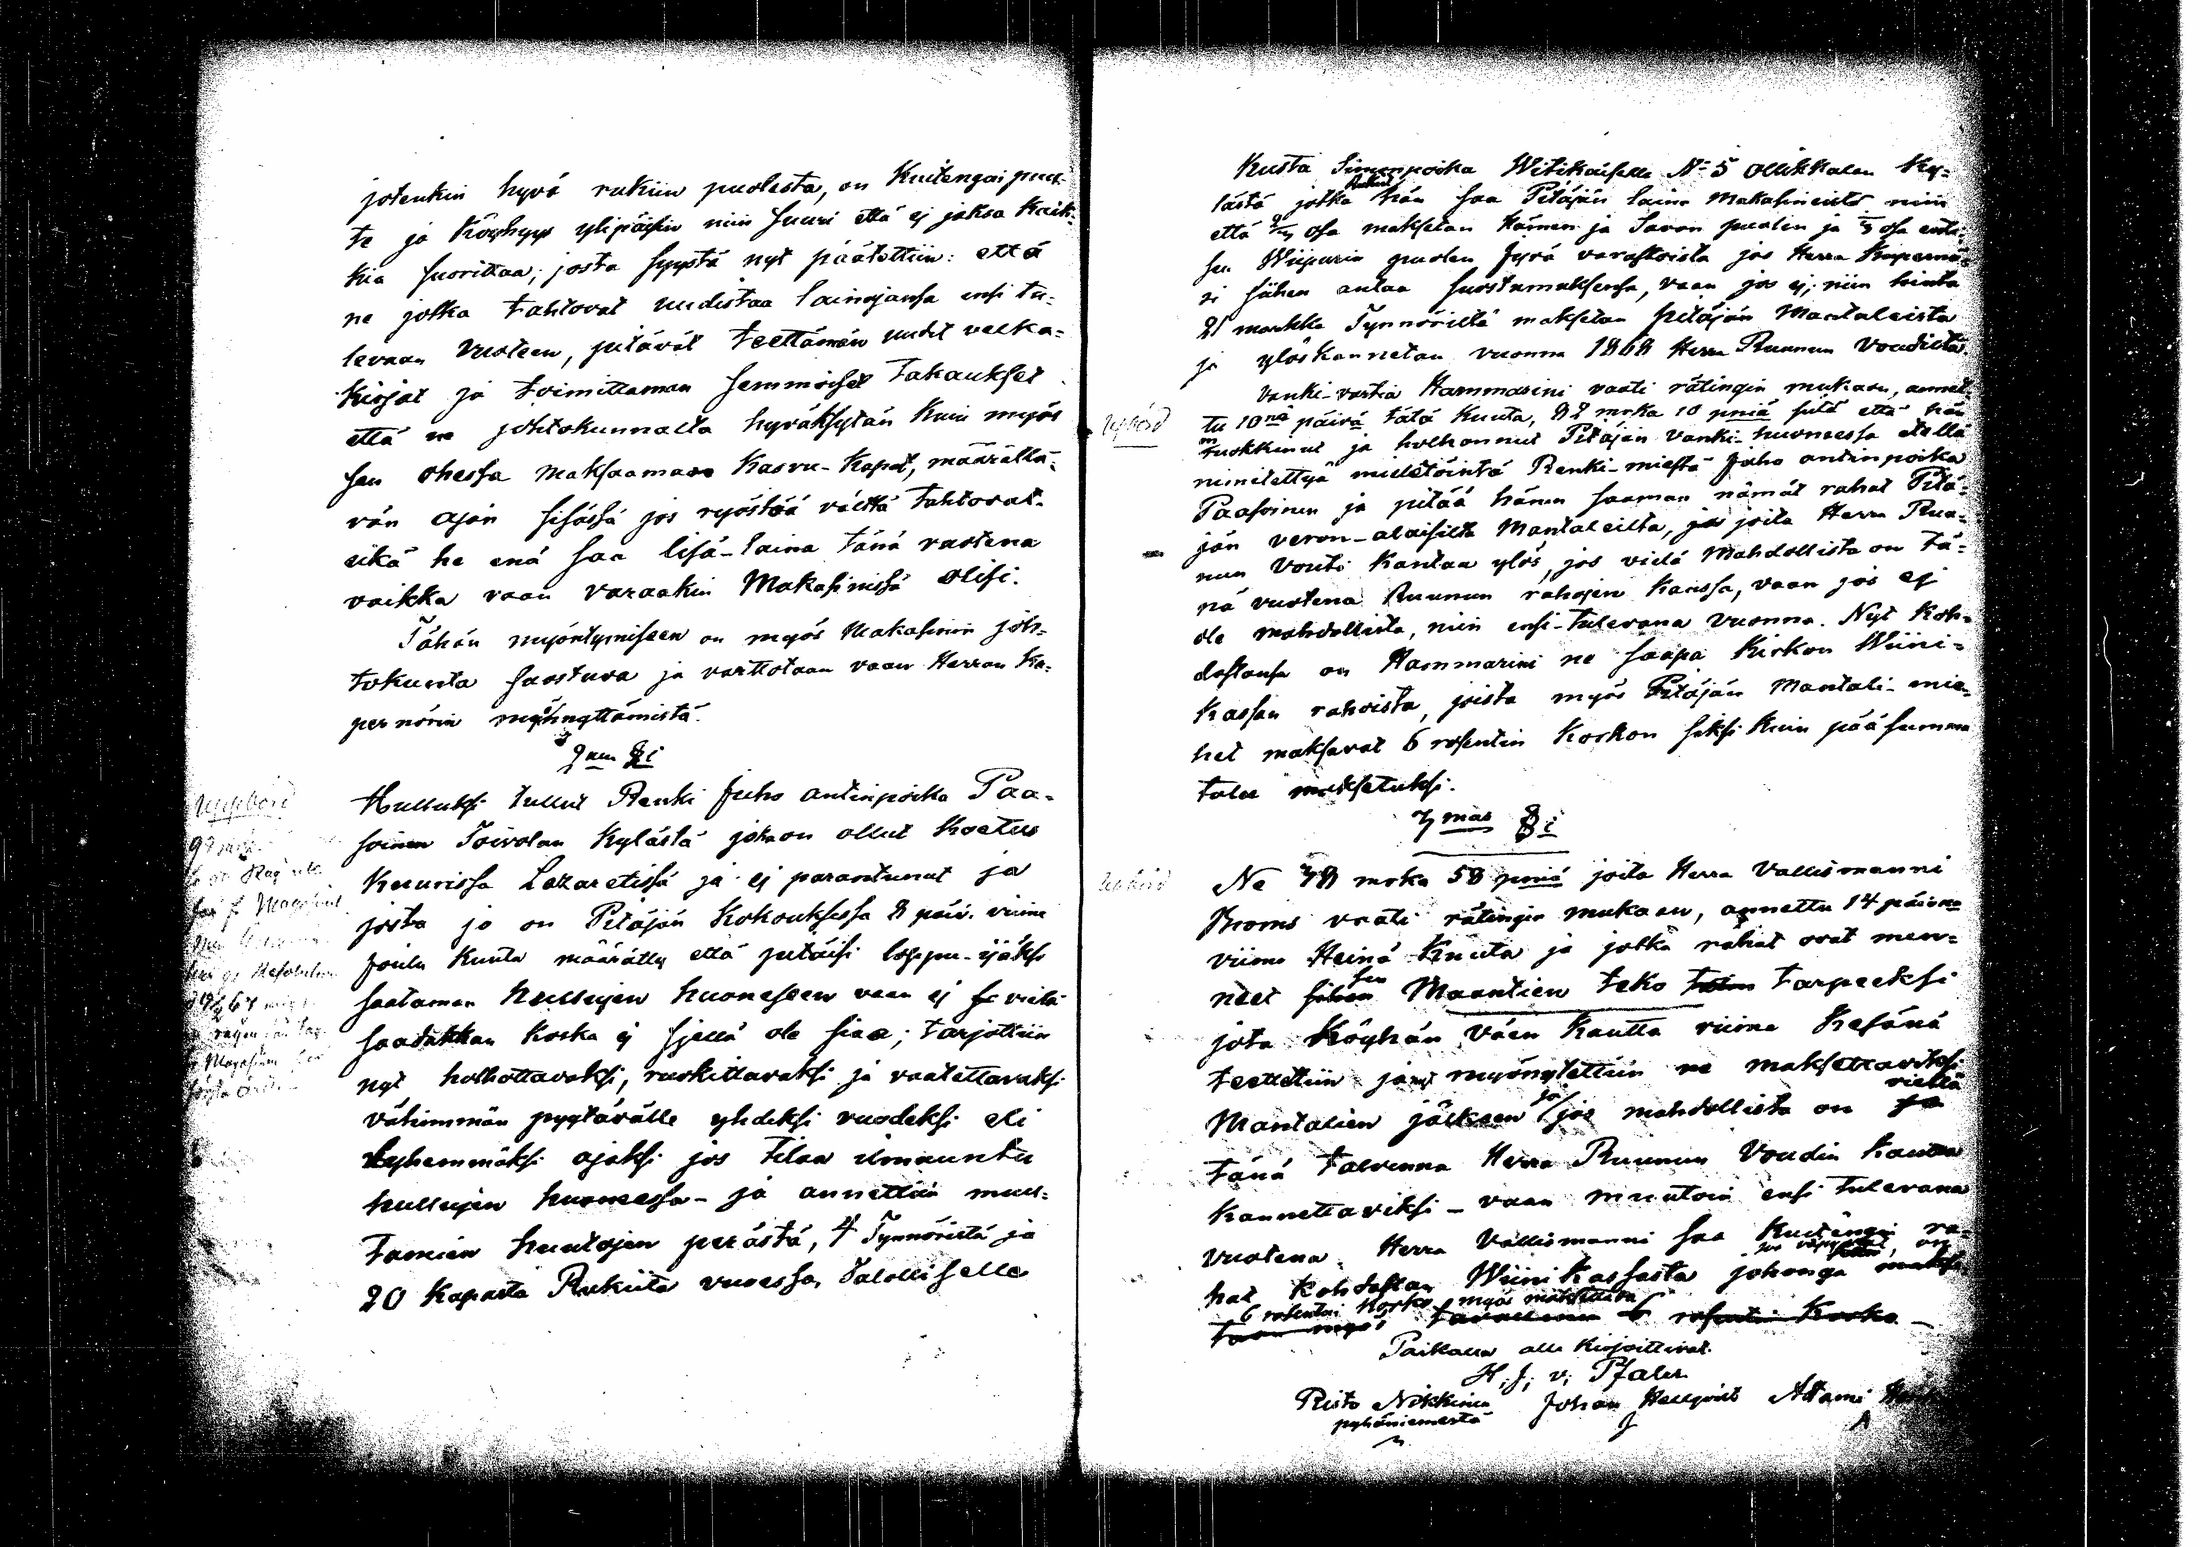 jotenkin hyvä rukiin puolesta, on Kuitengin puu-
te ja Köyhyys ylipäisin niin suuri että ej jaksa Kaik-
kia suorittaa; josta syystä nyt päätettiin: että
ne jotka tahtovat uudistaa lainojansa ensi tu-
levaan vuoteen, pitävät teettämän uudet velka-
Kirjat ja toimittaman semmoiset takaukset
että ne johtokunnalta hyväksytän Kuin myös
sen ohessa maksaaman Kasvu-Kapat, määrättä-
vän ajan sisässä jos ryöstöä välttä tahtovat.
eikä he enä saa lisä-laina tänä vuotena
vaikka vaan varaakin Makasinissa olisi.
Tähän myöntymiseen on myös Makasinin joh-
tokunta suostuva ja varttotaan vaan Herran Ku-
pernörin myönnyttämistä.
2nen §i
Hulluksi tullut Renki Juho antinpoika Paa-
soinen Toivolan Kylästä joka on ollut Koetus
Kuurissa Lazaretissä ja ej parantunut ja
josta jo on Pitäjän Kokouksessa 8 päiv. viime
Joulu Kuuta määrätty että pitäisi loppu-ijäksi
saataman hullujen huoneseen vaan ej se vielä
saadakkan koska ej sjellä ole siaa; tarjottiin
nyt holhottavaksi, ruokittavaksi ja vaatettavaksi
vähimmän pyytävälle yhdeksi vuodeksi eli
lyhemmäksi ajaksi jos tilaa ilmauntu
hullujen huoneessa - ja annettiin muu-
tamien huutojen perästä, 4 Tynnöristä ja
20 Kapasta Rukiita vuuessa, Talolliselle
Uppbörd
Kusta Simonpoika Witikaiselle N:o 5 ollikkalan Ky-
lästä jotka Rukiit hän saa Pitäjän laina Makasineista niin
että 2/3 osa maksetan Hämen ja Savon puolen ja 1/3 osa enti-
sen Wiipurin puolen Jyvä varastoista jos Herra Kupernö-
ri sihen antaa suostumuksensa, vaan jos ej; niin hinta
21 markka Tynnöriltä maksetan pitäjän Mantaleista
ja ylöskannetan vuonna 1868 Herra Ruunun Voudilta.
Uppbörd
Vanki-vartia Hammarini vaati rätingin mukaan, annet-
tu 10nä päivä tätä Kuuta, 82 mrka 10 pniä siitä että hän
ruokkinut ja holhonnut Pitäjän vanki-huoneessa edellä
nimitettyä mieletöintä Renki-miestä Juho antinpoika
Paasoinen ja pitää hänen saaman nämät rahat Pitä-
jän veron-alaisilta Mantaleilta, joita Herra Ruu-
nun Vouti Kantaa ylös, jos vielä Mahdollista on tä-
nä vuotena Ruunun rahojen Kanssa, vaan jos ej
ole mahdollista, niin ensi-tulevana vuonna. Nyt Koh-
dastansa on Hammarini ne saapa Kirkon Wiini-
Kassan rahoista, joista myös Pitäjän Mantali-mie-
het maksavat 6 rosentin Korkon siksi Kuin pääsumma
tulee maksetuksi.
3mas §i
Uppbörd
Ne 78 mrka 58 pniä joita Herra Vallesmanni
Broms vaati rätingin mukaan, annettu 14 päivänä
viime Heinä Kuuta ja jotka rahat ovat men-
neet sen Maantien teko tarpeeksi
jota Köyhän väen Kautta viime Kesänä
teettetiin ja myönytettiin ne maksettaviksi
Mantalien jälkeen ja jos mahdollista on vieltä
tänä talvenna Herra Ruunun Voudin Kautta
kannettaviksi - vaan muutoin ensi tulevana
vuotena. Herra Vallesmanni saa Kuitengin ra-
hat Kohdastan Wiini Kassasta johonga
6 rosentin Korko myös maksettava
Paikalla alle Kirjoittivat.
H. J. v. Pfaler
Risto Nikkinen Johan Hellqvist Adami
pyhäniemestä